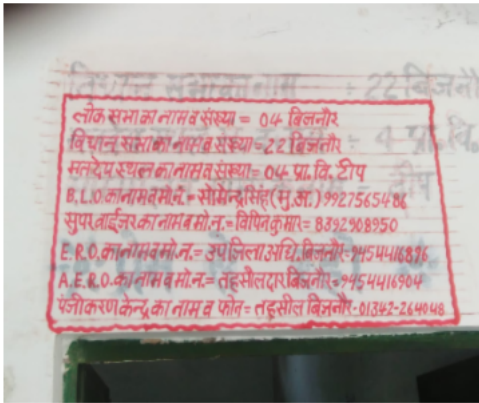 विधान सभा का नाम : 22 बिजनौ
लोक सभा का नाम व संख्या = 04 बिजनौर
विधान सभा का नाम व संख्या = 22 बिजनौर
4 प्रा. वि.
मतदेय स्थल का नाम व संख्या = 04 प्रा. वि. टीप
टीप
B.L.O. का नाम व मो.नं. = सोमेन्द्र सिंह (मु.अ.) 9927565486
सुपरवाईजर का नाम व मो.न. = विपिन कुमार = 8392908950
E.R.O. का नाम व मो.न. = उपजिला अधि. बिजनौर = 9454416896
A.E.R.O. का नाम व मो.न. = तहसीलदार बिजनौर = 9454416904
पंजीकरण केन्द्र का नाम व फोन = तहसील बिजनौर - 01342-264048